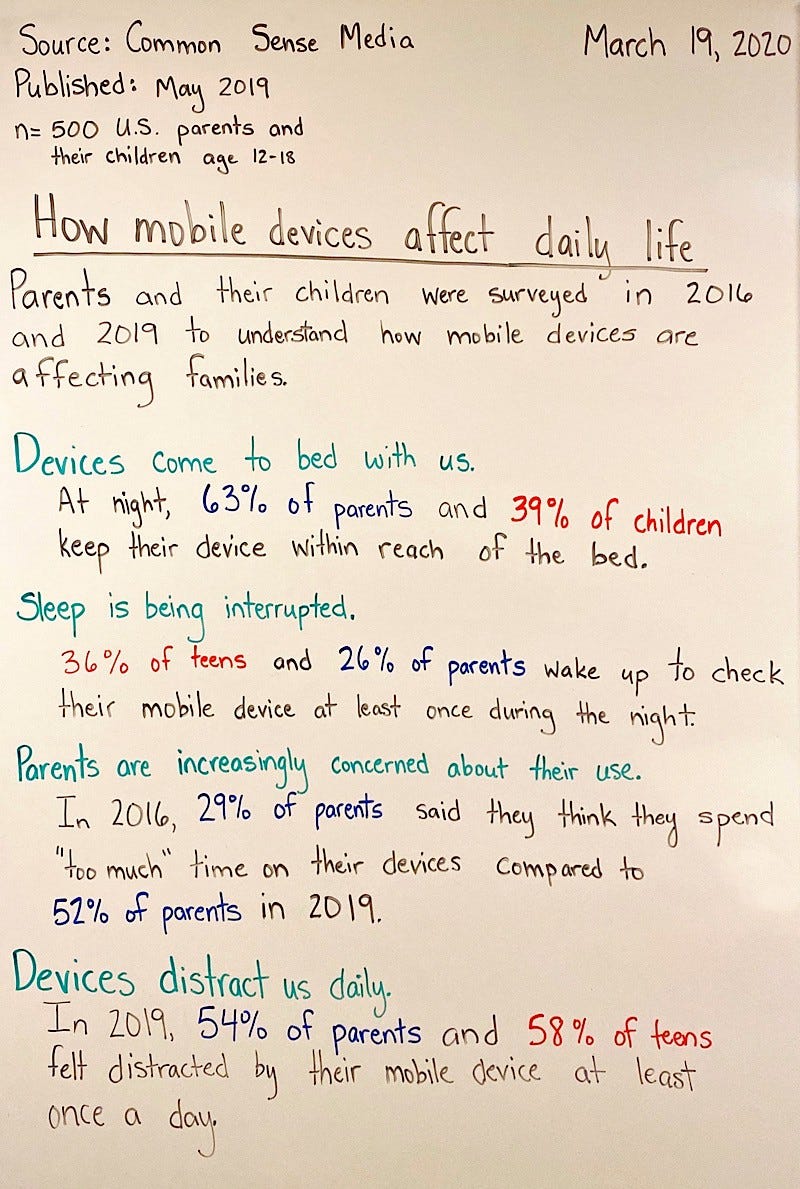 Source: Common Sense Media March 19, 2020
Published: May 2019
n= 500 U.S. parents and
their children age 12-18
How mobile devices affect daily life
Parents and their children were surveyed in 2016
and 2019 to understand how mobile devices are
affecting families.
Devices come to bed with us.
At night, 63% of parents and 39% of children
keep their device within reach of the bed.
Sleep is being interrupted.
36% of teens and 26% of parents wake up to check
their mobile device at least once during the night.
Parents are increasingly concerned about their use.
In 2016, 29% of parents said they think they spend
"too much" time on their devices compared to
52% of parents in 2019.
Devices distract us daily.
In 2019, 54% of parents and 58% of teens
felt distracted by their mobile device at least
once a day.